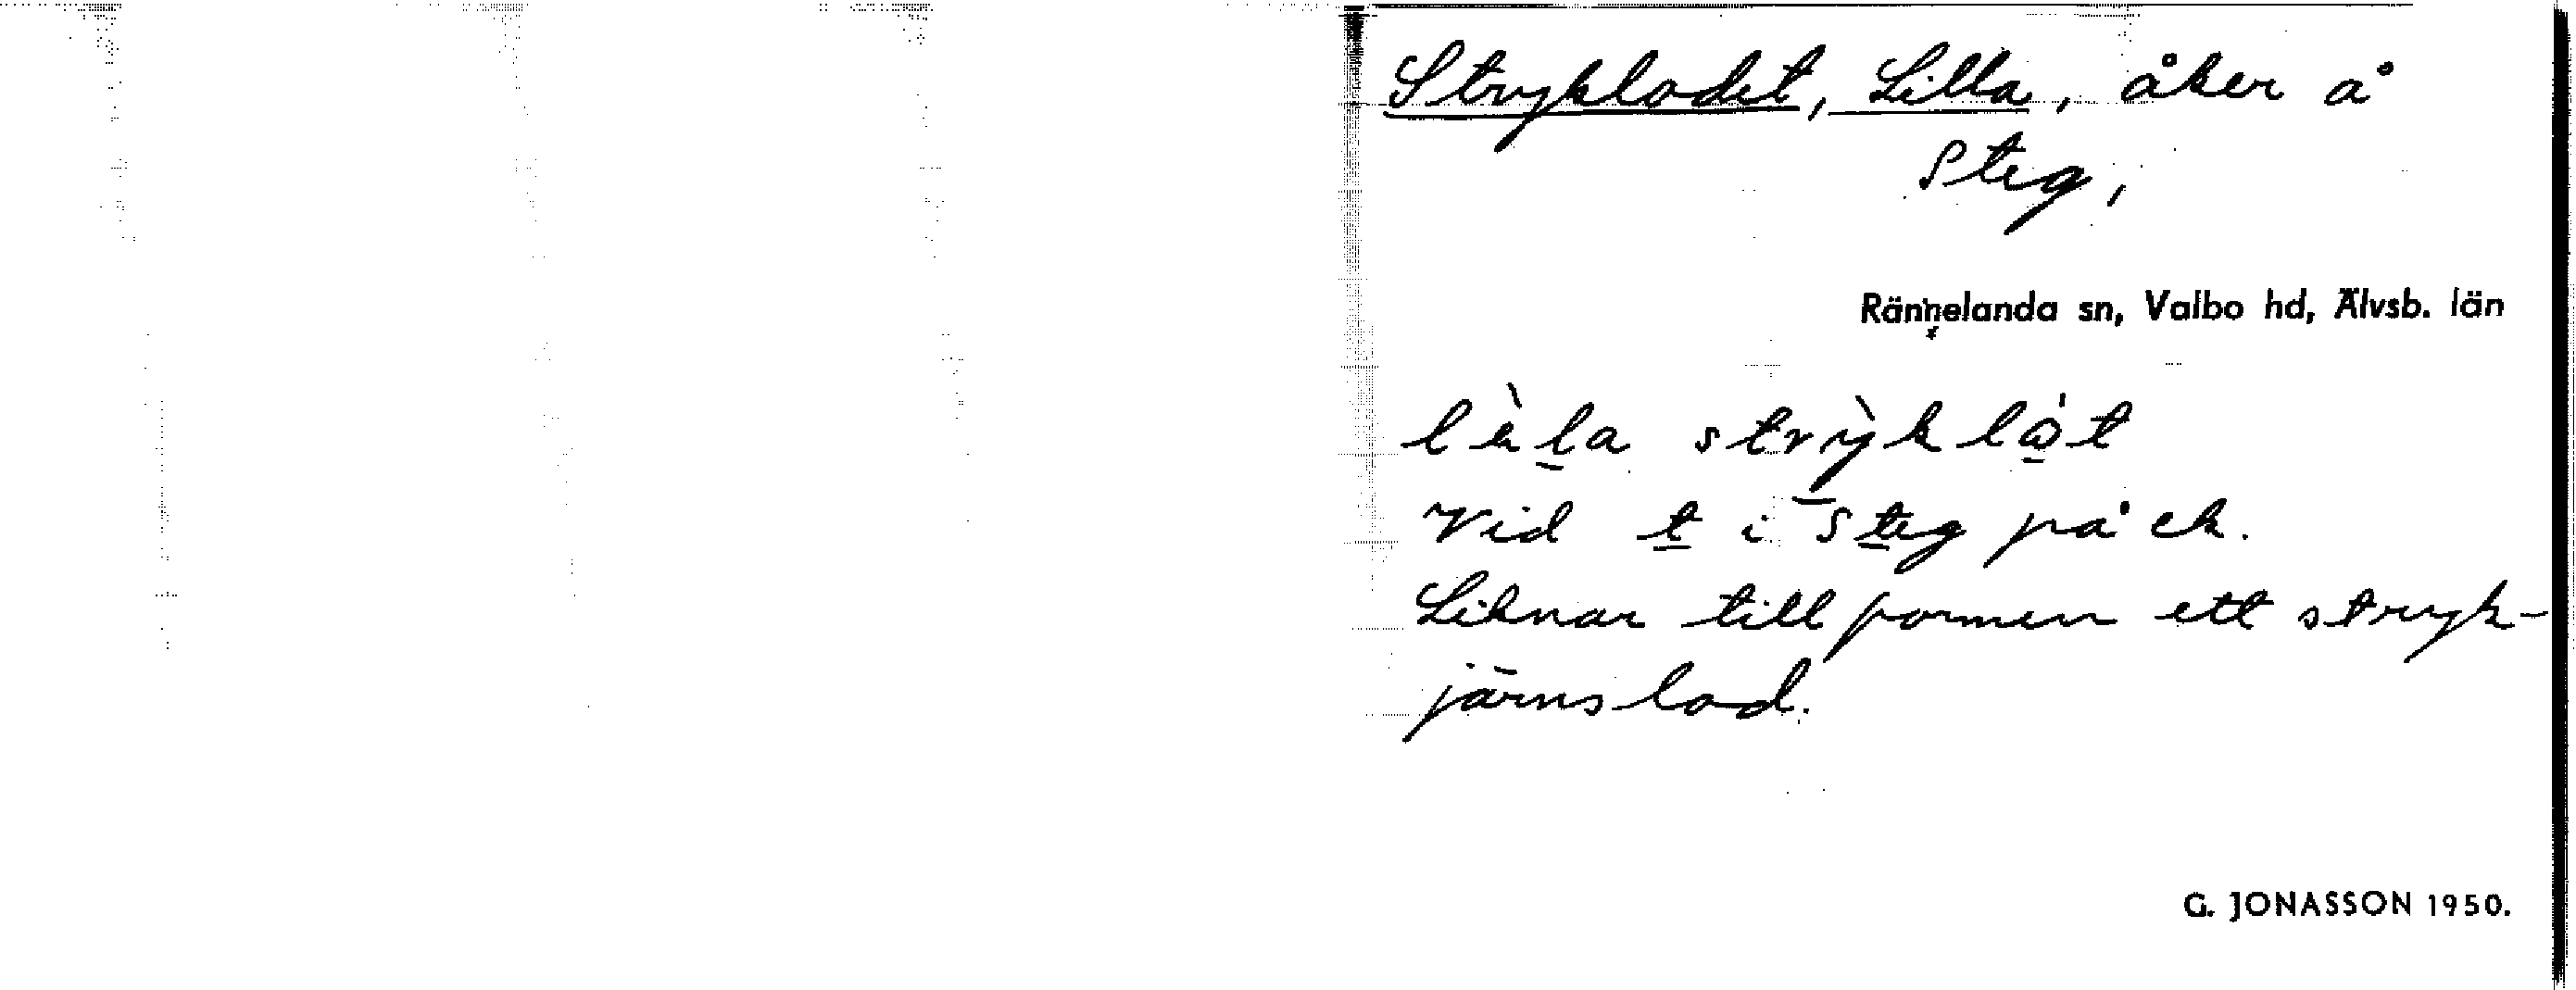 Strykladet, Lilla, åker å
Steg,
Rännelanda sn, Valbo hd, Älvsb. län
lὲla strỳk lɷ́t
Vid t i Steg på ek.
Liknar till formen ett stryk-
järnslod.
G. JONASSON 1950.